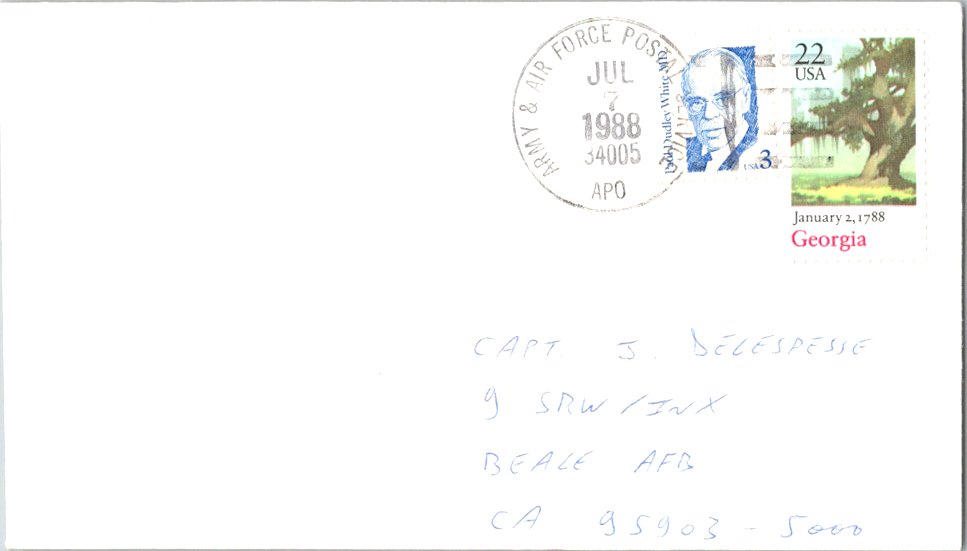 ARMY & AIR FORCE POSTAL SERVICE
JUL
7
1988
34005
APO
Paul Dudley White MD
USA 3
22
USA
January 2, 1788
Georgia
CAPT. J. DELESPESSE
9 SRW/INX
BEALE AFB
CA 95903-5000